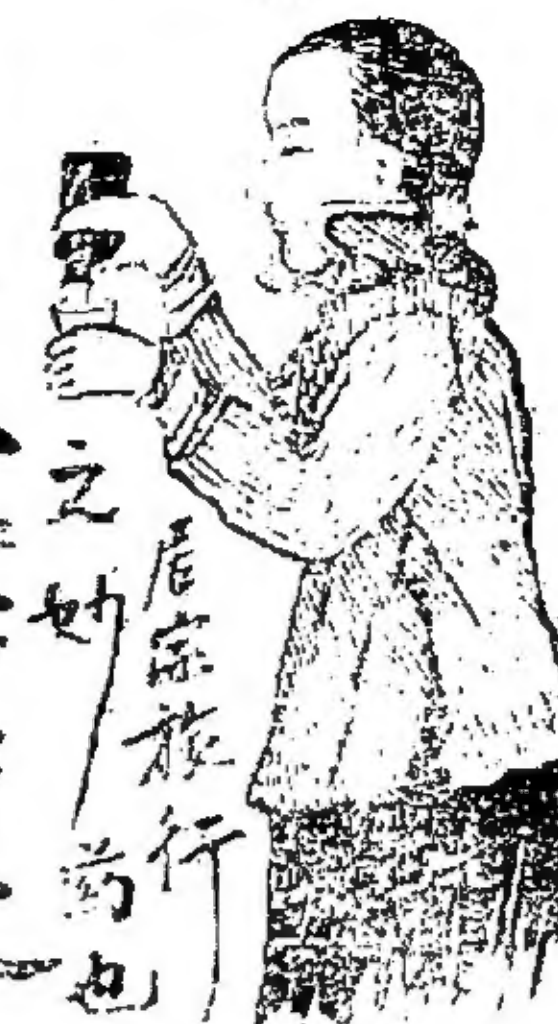 居家旅行
之妙药也